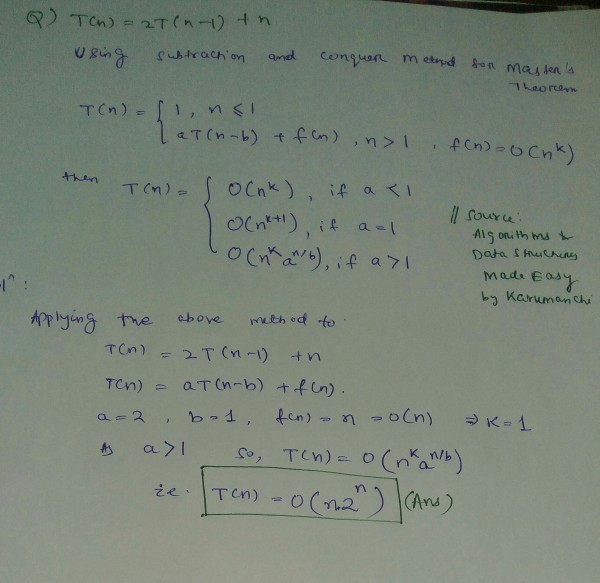 Q) T(n) = 2T(n-1) + n
Using subtraction and conquer method for Master's
Theorem
T(n) = { 1, n ≤ 1
aT(n-b) + f(n), n > 1, f(n) = O(n^k)
then T(n) = { O(n^k), if a < 1
O(n^{k+1}), if a = 1
O(n^k a^{n/b}), if a > 1
// Source:
Algorithms &
Data Structures
Made Easy
by Karumanchi
l^n :
Applying the above method to.
T(n) = 2T(n-1) + n
T(n) = aT(n-b) + f(n).
a = 2, b = 1, f(n) = n = O(n) ⇒ K = 1
As a > 1 so, T(n) = O(n^k a^{n/b})
ie. T(n) = O(n.2^n) (Ans)